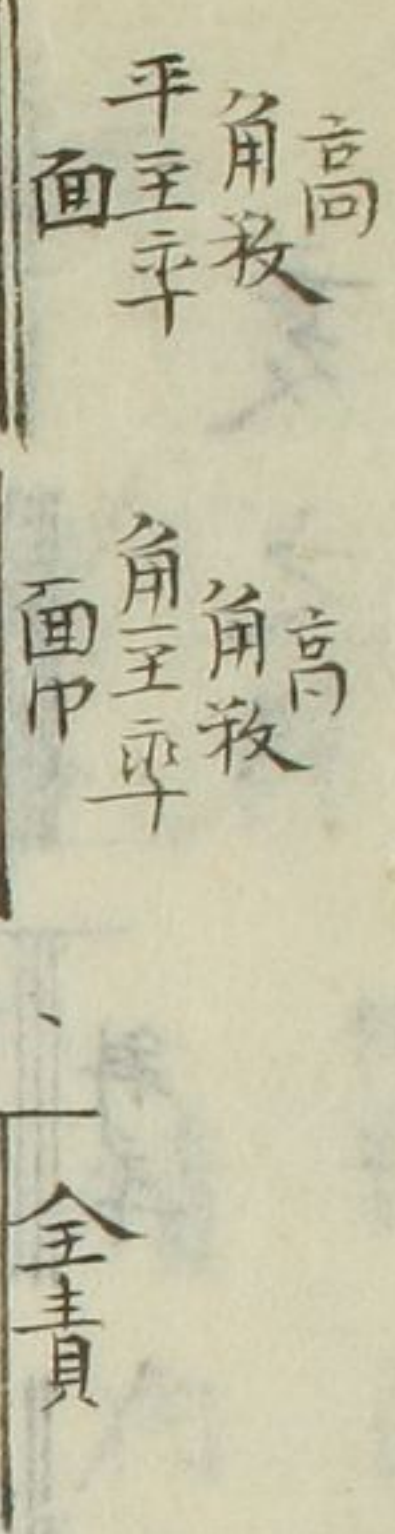 高
角数
平主率
面
高
角数
角主率
面巾
全責